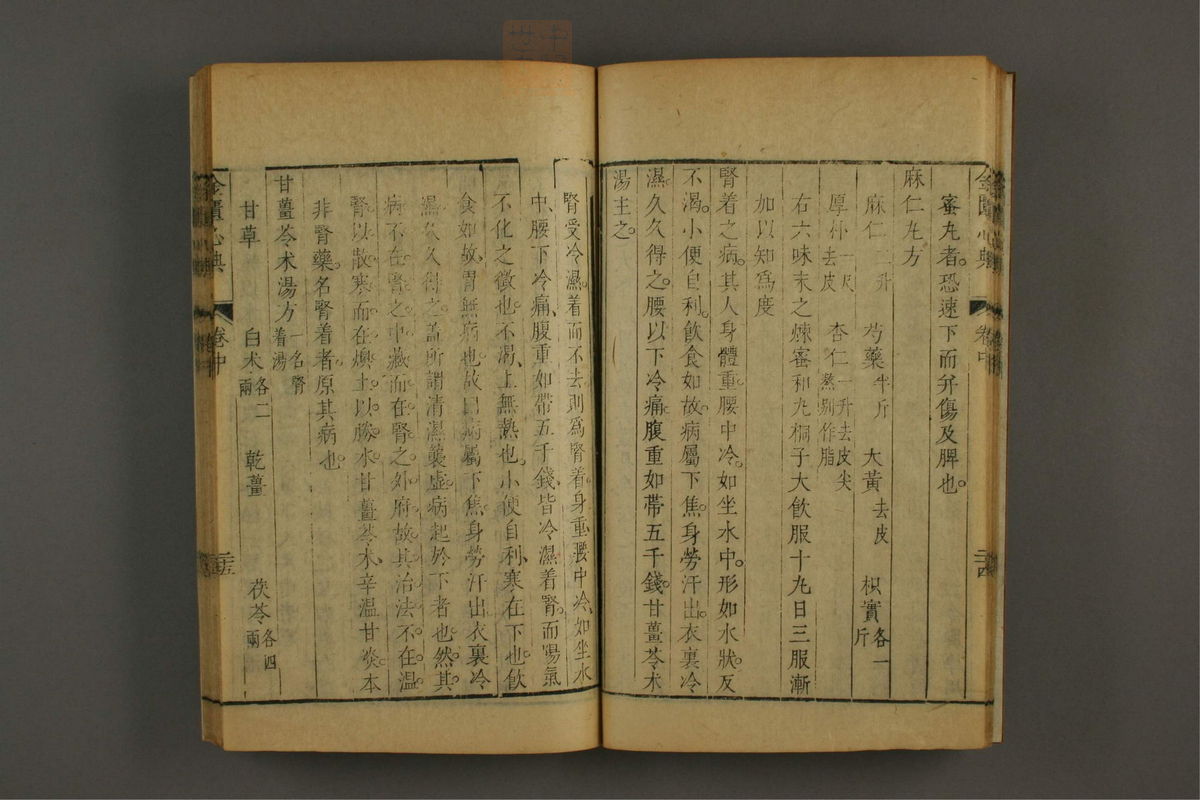 金匱心典 卷中 二十四
蜜丸者。恐速下而弁傷及脾也。
麻仁丸方
麻仁二升 芍藥半斤 大黃去皮 枳實各一斤
厚朴一尺去皮 杏仁一升去皮尖熬别作脂
右六味末之煉蜜和丸桐子大飲服十丸日三服漸
加以知爲度
腎着之病。其人身體重。腰中冷。如坐水中。形如水狀。反
不渴。小便自利。飲食如故。病屬下焦。身勞汗出。衣裏冷
濕。久久得之。腰以下冷痛。腹重如帶五千錢。甘薑苓术
湯主之。
腎受冷濕。着而不去。則爲腎着。身重。腰中冷。如坐水
中。腰下冷痛。腹重如帶五千錢。皆冷濕着腎。而陽氣
不化之徵也。不渴。上無熱也。小便自利。寒在下也。飲
食如故。胃無病也。故曰病屬下焦。身勞汗出。衣裏冷
濕。久久得之。蓋所謂清濕襲虛。病起於下者也。然其
病不在腎之中藏。而在腎之外府。故其治法。不在溫
腎以散寒。而在燠土以勝水。甘薑苓术。辛溫甘淡。本
非腎藥。名腎着者。原其病也。
甘薑苓术湯方一名腎着湯
甘草 白术各二兩 乾薑 茯苓各四兩
金匱心典 卷中 二十五